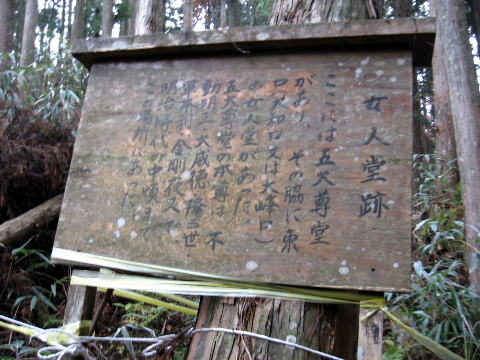 女人堂跡
ここには五大尊堂
があり、その脇に東
口又和口又は大峰口)
の女人堂があった。
五大尊堂の本尊は、不
動明王、大威徳、隆三世、
軍荼利、金剛夜叉で
時代の中頃まで
この場所にあった。